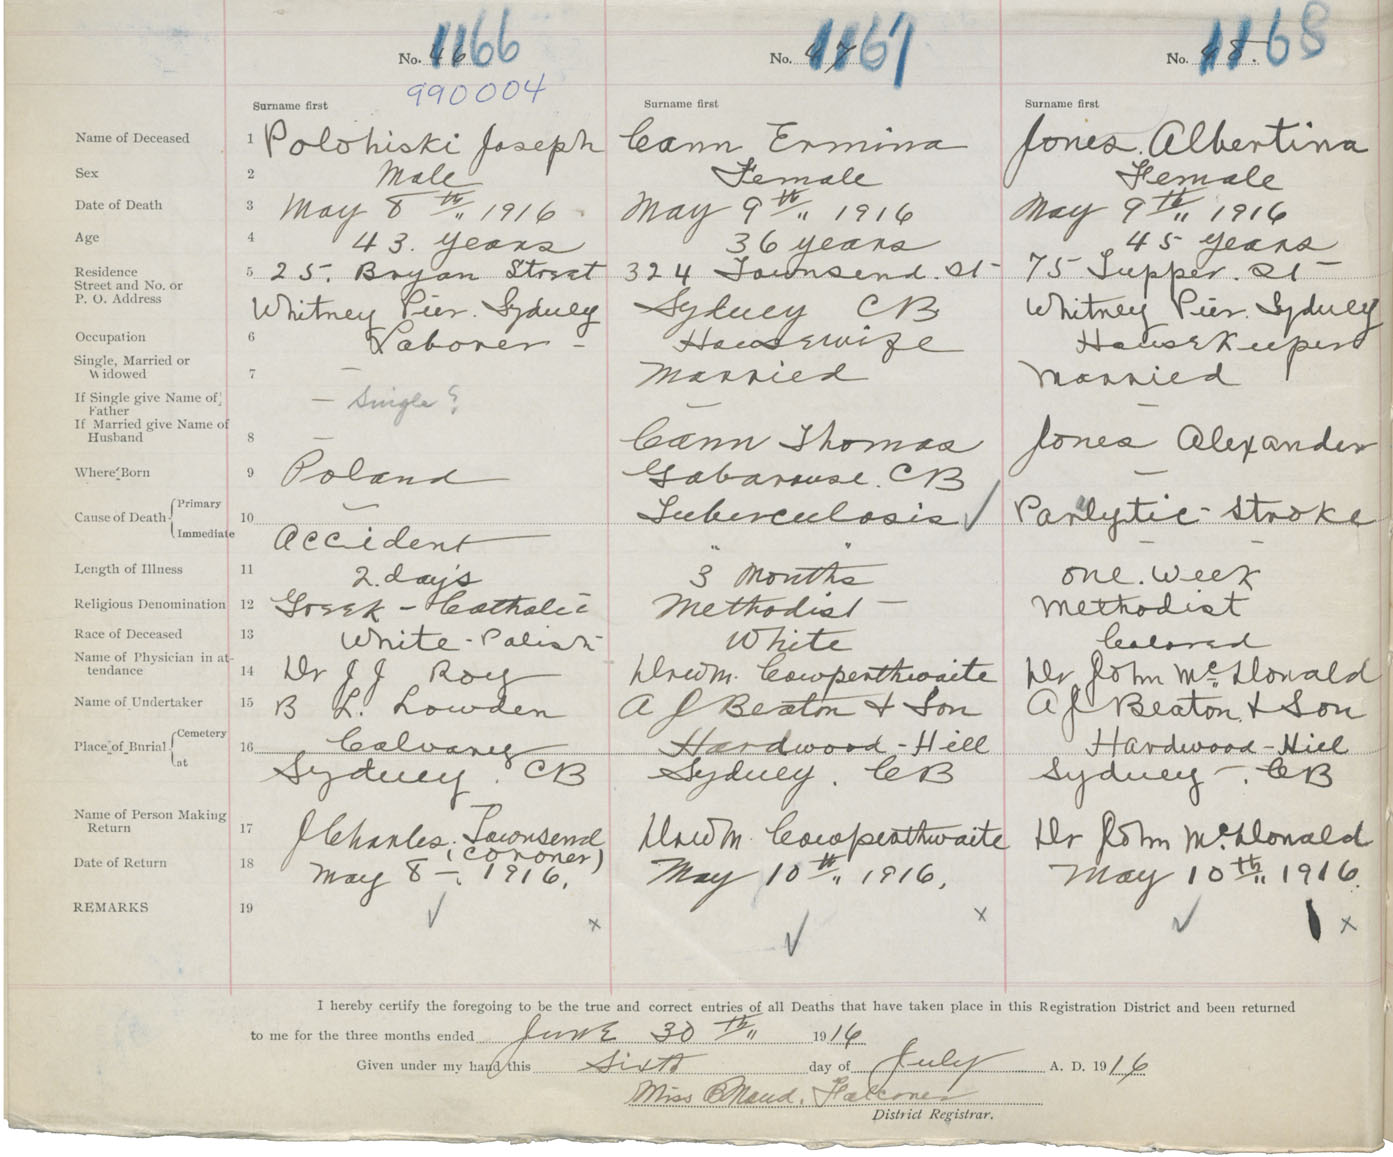 No. 46 1166
No. 47 1167
No. 48. 1168
990004
Surname first
Surname first
Surname first
Name of Deceased 1 Polohiski Joseph Cann Ermina Jones. Albertina
Sex 2 Male Female Female
Date of Death 3 May 8th 1916 May 9th 1916 May 9th 1916
Age 4 43. years 36 years 45 years
Residence 5 25. Bryan Street 324 Townsend. St 75 Tupper. St
Street and No. or
P. O. Address Whitney Pier. Sydney Sydney CB Whitney Pier. Sydney
Occupation 6 Laborer - Housewife Housekeeper
Single, Married or
Widowed 7 — Married Married
If Single give Name of — Single? — —
Father
If Married give Name of
Husband 8 — Cann Thomas Jones Alexander
Where Born 9 Poland Gabarouse. CB —
Cause of Death Primary 10 — Tuberculosis ✓ Parlytic - Stroke
Immediate Accident " " — —
Length of Illness 11 2. days 3 Months one. week
Religious Denomination 12 Greek - Catholic Methodist — Methodist
Race of Deceased 13 White - Polish White Colored
Name of Physician in at-
tendance 14 Dr J J Roy Dr W M. Cowperthwaite Dr John McDonald
Name of Undertaker 15 B L. Lowden A J Beaton & Son A J Beaton & Son
Place of Burial Cemetery 16 Calvary Hardwood - Hill Hardwood - Hill
at Sydney. CB Sydney. CB Sydney -. CB
Name of Person Making
Return 17 J Charles. Townsend Dr W M. Cowperthwaite Dr John McDonald
(coroner)
Date of Return 18 May 8 -. 1916. May 10th 1916. May 10th 1916.
REMARKS 19 ✓ x ✓ x ✓ x
I hereby certify the foregoing to be the true and correct entries of all Deaths that have taken place in this Registration District and been returned
to me for the three months ended June 30th 1916
Given under my hand this Sixth day of July A. D. 1916
Miss B Maud. Falconer
District Registrar.